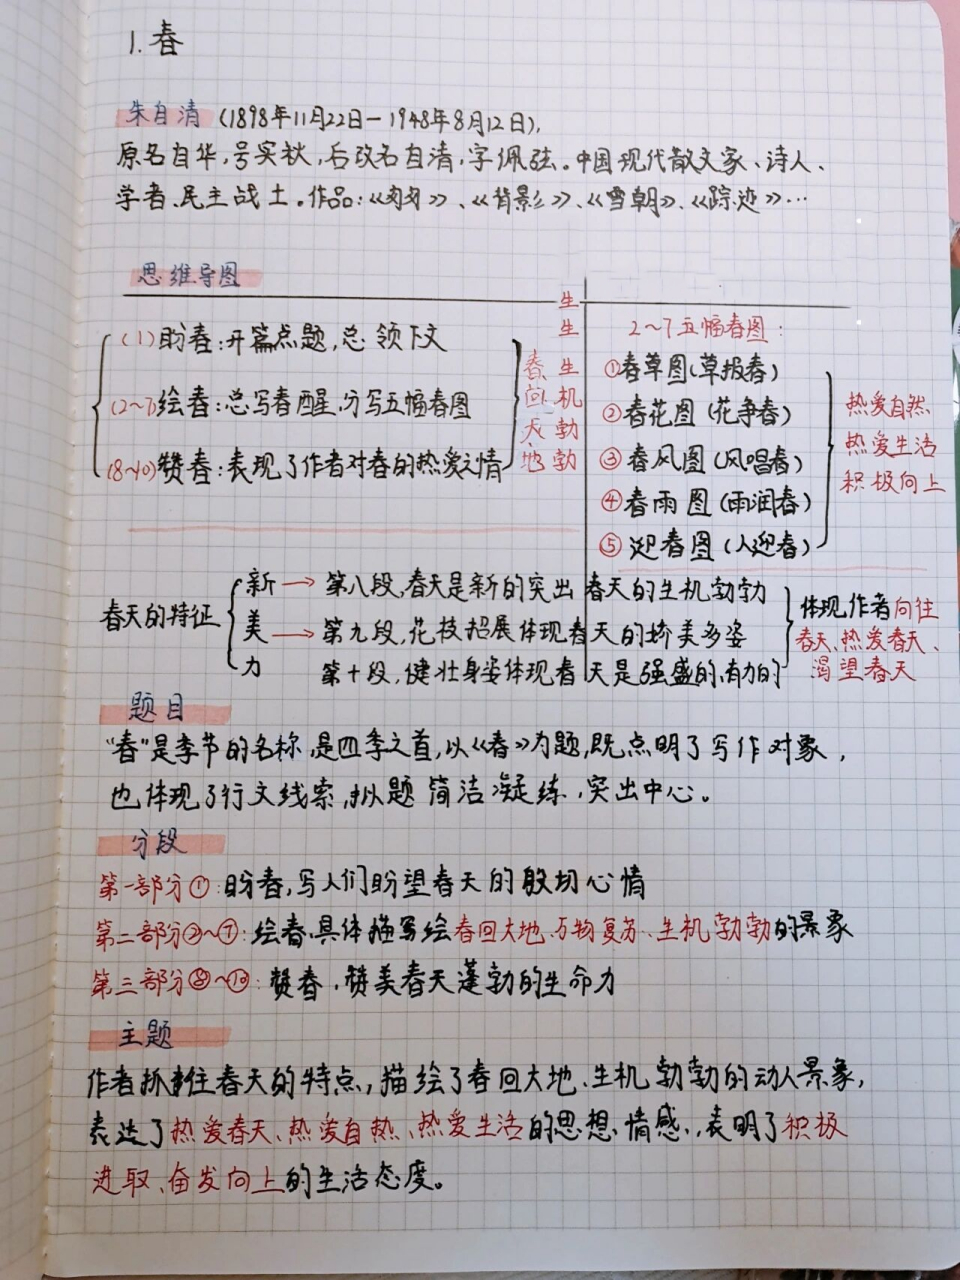 1. 春
朱自清 (1898年11月22日一1948年8月12日),
原名自华,号实秋,后改名自清,字佩弦。中国现代散文家、诗人、
学者、民主战士。作品:《匆匆》、《背影》、《雪朝》、《踪迹》…
思维导图
(1)盼春:开篇点题,总领下文
(2~7)绘春:总写春醒,分写五幅春图
(8~10)赞春:表现了作者对春的热爱之情
春回天地
生生生机勃勃
2~7五幅春图:
①春草图(草报春)
②春花图(花争春)
③春风图(风唱春)
④春雨图(雨润春)
⑤迎春图(人迎春)
热爱自然
热爱生活
积极向上
春天的特征
新→第八段,春天是新的突出春天的生机勃勃
美→第九段,花枝招展体现春天的娇美多姿
力 第十段,健壮身姿体现春天是强盛的,有力的
体现作者向往
春天、热爱春天、
渴望春天
题目
“春”是季节的名称,是四季之首,以《春》为题,既点明了写作对象,
也体现了行文线索,拟题简洁凝练,突出中心。
分段
第一部分①:盼春,写人们盼望春天的殷切心情
第二部分②~⑦:绘春,具体描写绘春回大地、万物复苏、生机勃勃的景象
第三部分⑧~⑩:赞春,赞美春天蓬勃的生命力
主题
作者抓住春天的特点,描绘了春回大地、生机勃勃的动人景象,
表达了热爱春天、热爱自然、热爱生活的思想情感,表明了积极
进取、奋发向上的生活态度。